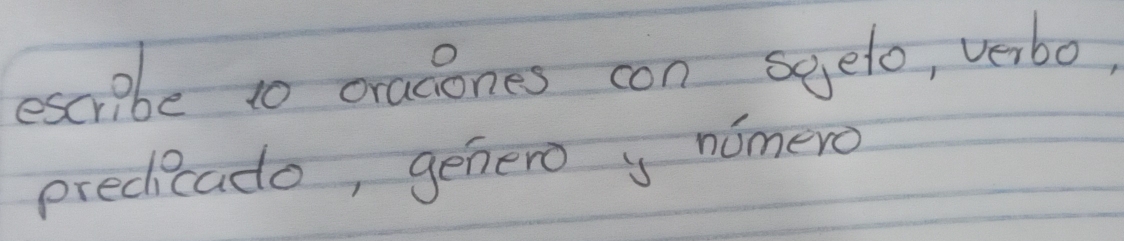 escribe 10 oraciones con sujeto, verbo,
predicado, género y número